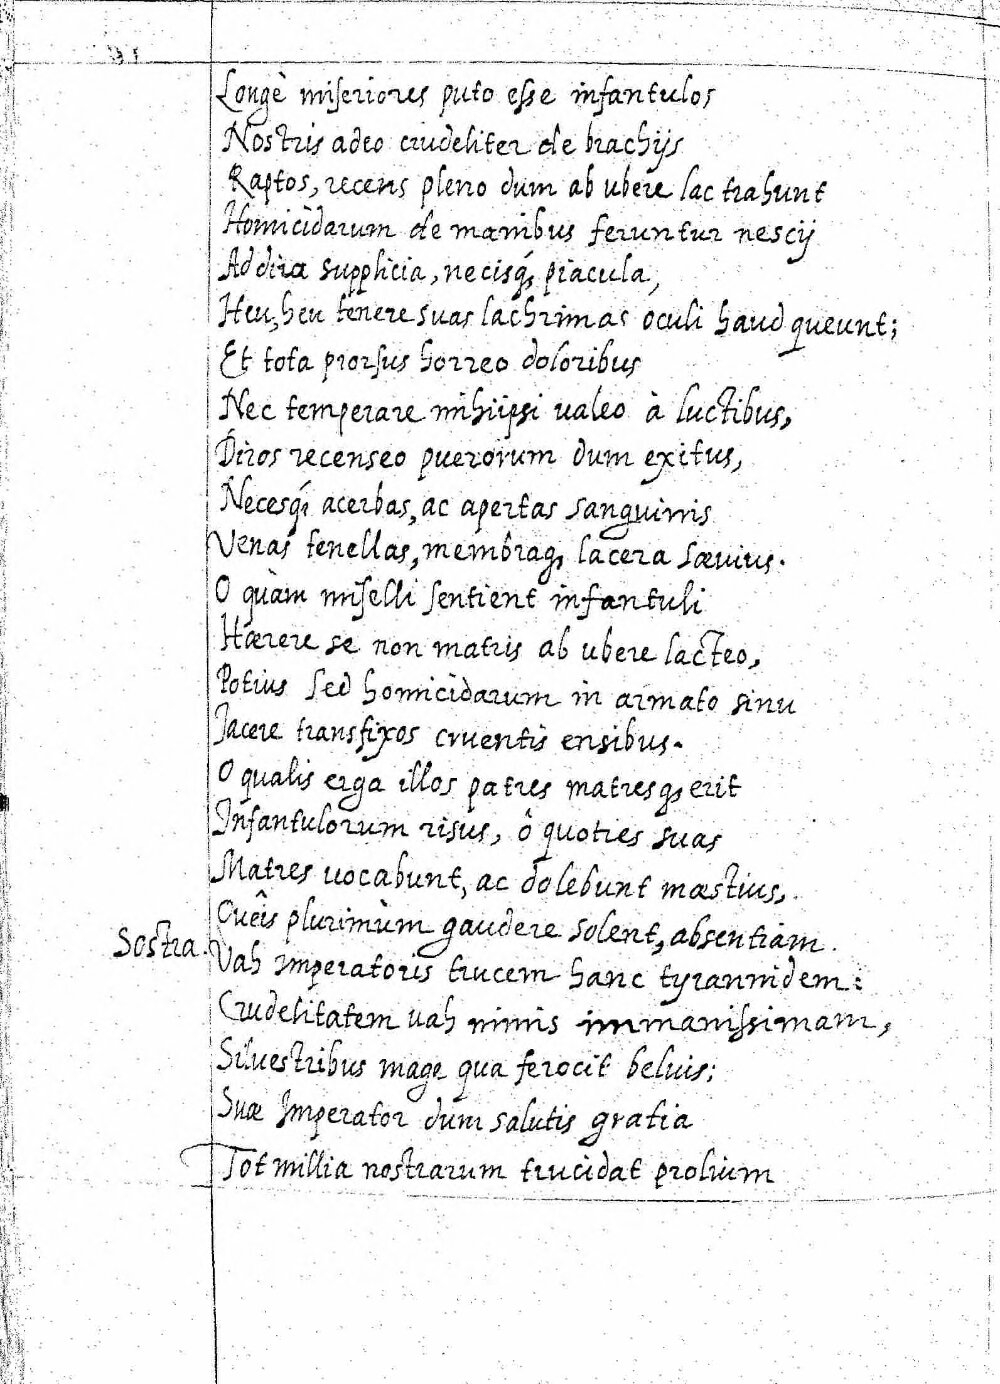 Longè miseriores puto esse infantulos
Nostris adeo crudeliter de brachijs
Raptos, recens pleno dum ab ubere lac trahunt
Homicidarum de manibus feruntur nescij
Ad dira supplicia, necisq; piacula,
Heu, heu tenere suas lachrimas oculi haud queunt;
Et tota prorsus horreo doloribus
Nec temperare mihiipsi valeo à luctibus,
Diros recenseo puerorum dum exitus,
Necesq; acerbas, ac apertas sanguinis
Venas tenellas, membraq; lacera sævius.
O quàm miselli sentient infantuli
Hærere se non matris ab ubere lacteo,
Potius sed homicidarum in armato sinu
Jacere transfixos cruentis ensibus.
O qualis erga illos patres matresq; erit
Infantulorum risus, ô quoties suas
Matres uocabunt, ac dolebunt mæstius,
Queîs plurimùm gaudere solent, absentiam.
Sostra. Vah Imperatoris trucem hanc tyrannidem:
Crudelitatem uah nimis immanissimam,
Siluestribus mage qua ferocit beluis;
Suæ Imperator dum salutis gratia
Tot millia nostrarum trucidat prolium